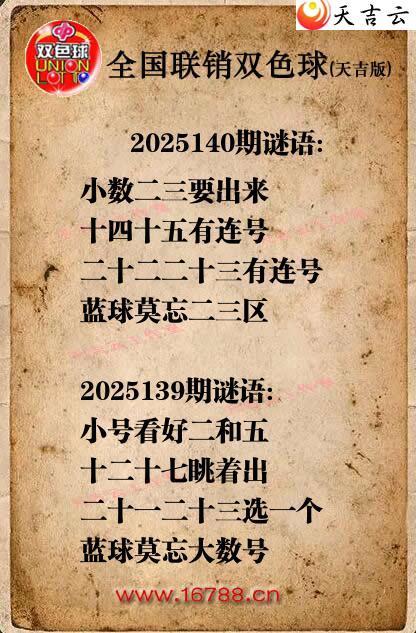 天吉云
双色球
UNION
LOTTO
全国联销双色球(天吉版)
2025140期谜语:
小数二三要出来
十四十五有连号
二十二二十三有连号
蓝球莫忘二三区
2025139期谜语:
小号看好二和五
十二十七眺着出
二十一二十三选一个
蓝球莫忘大数号
www.16788.cn